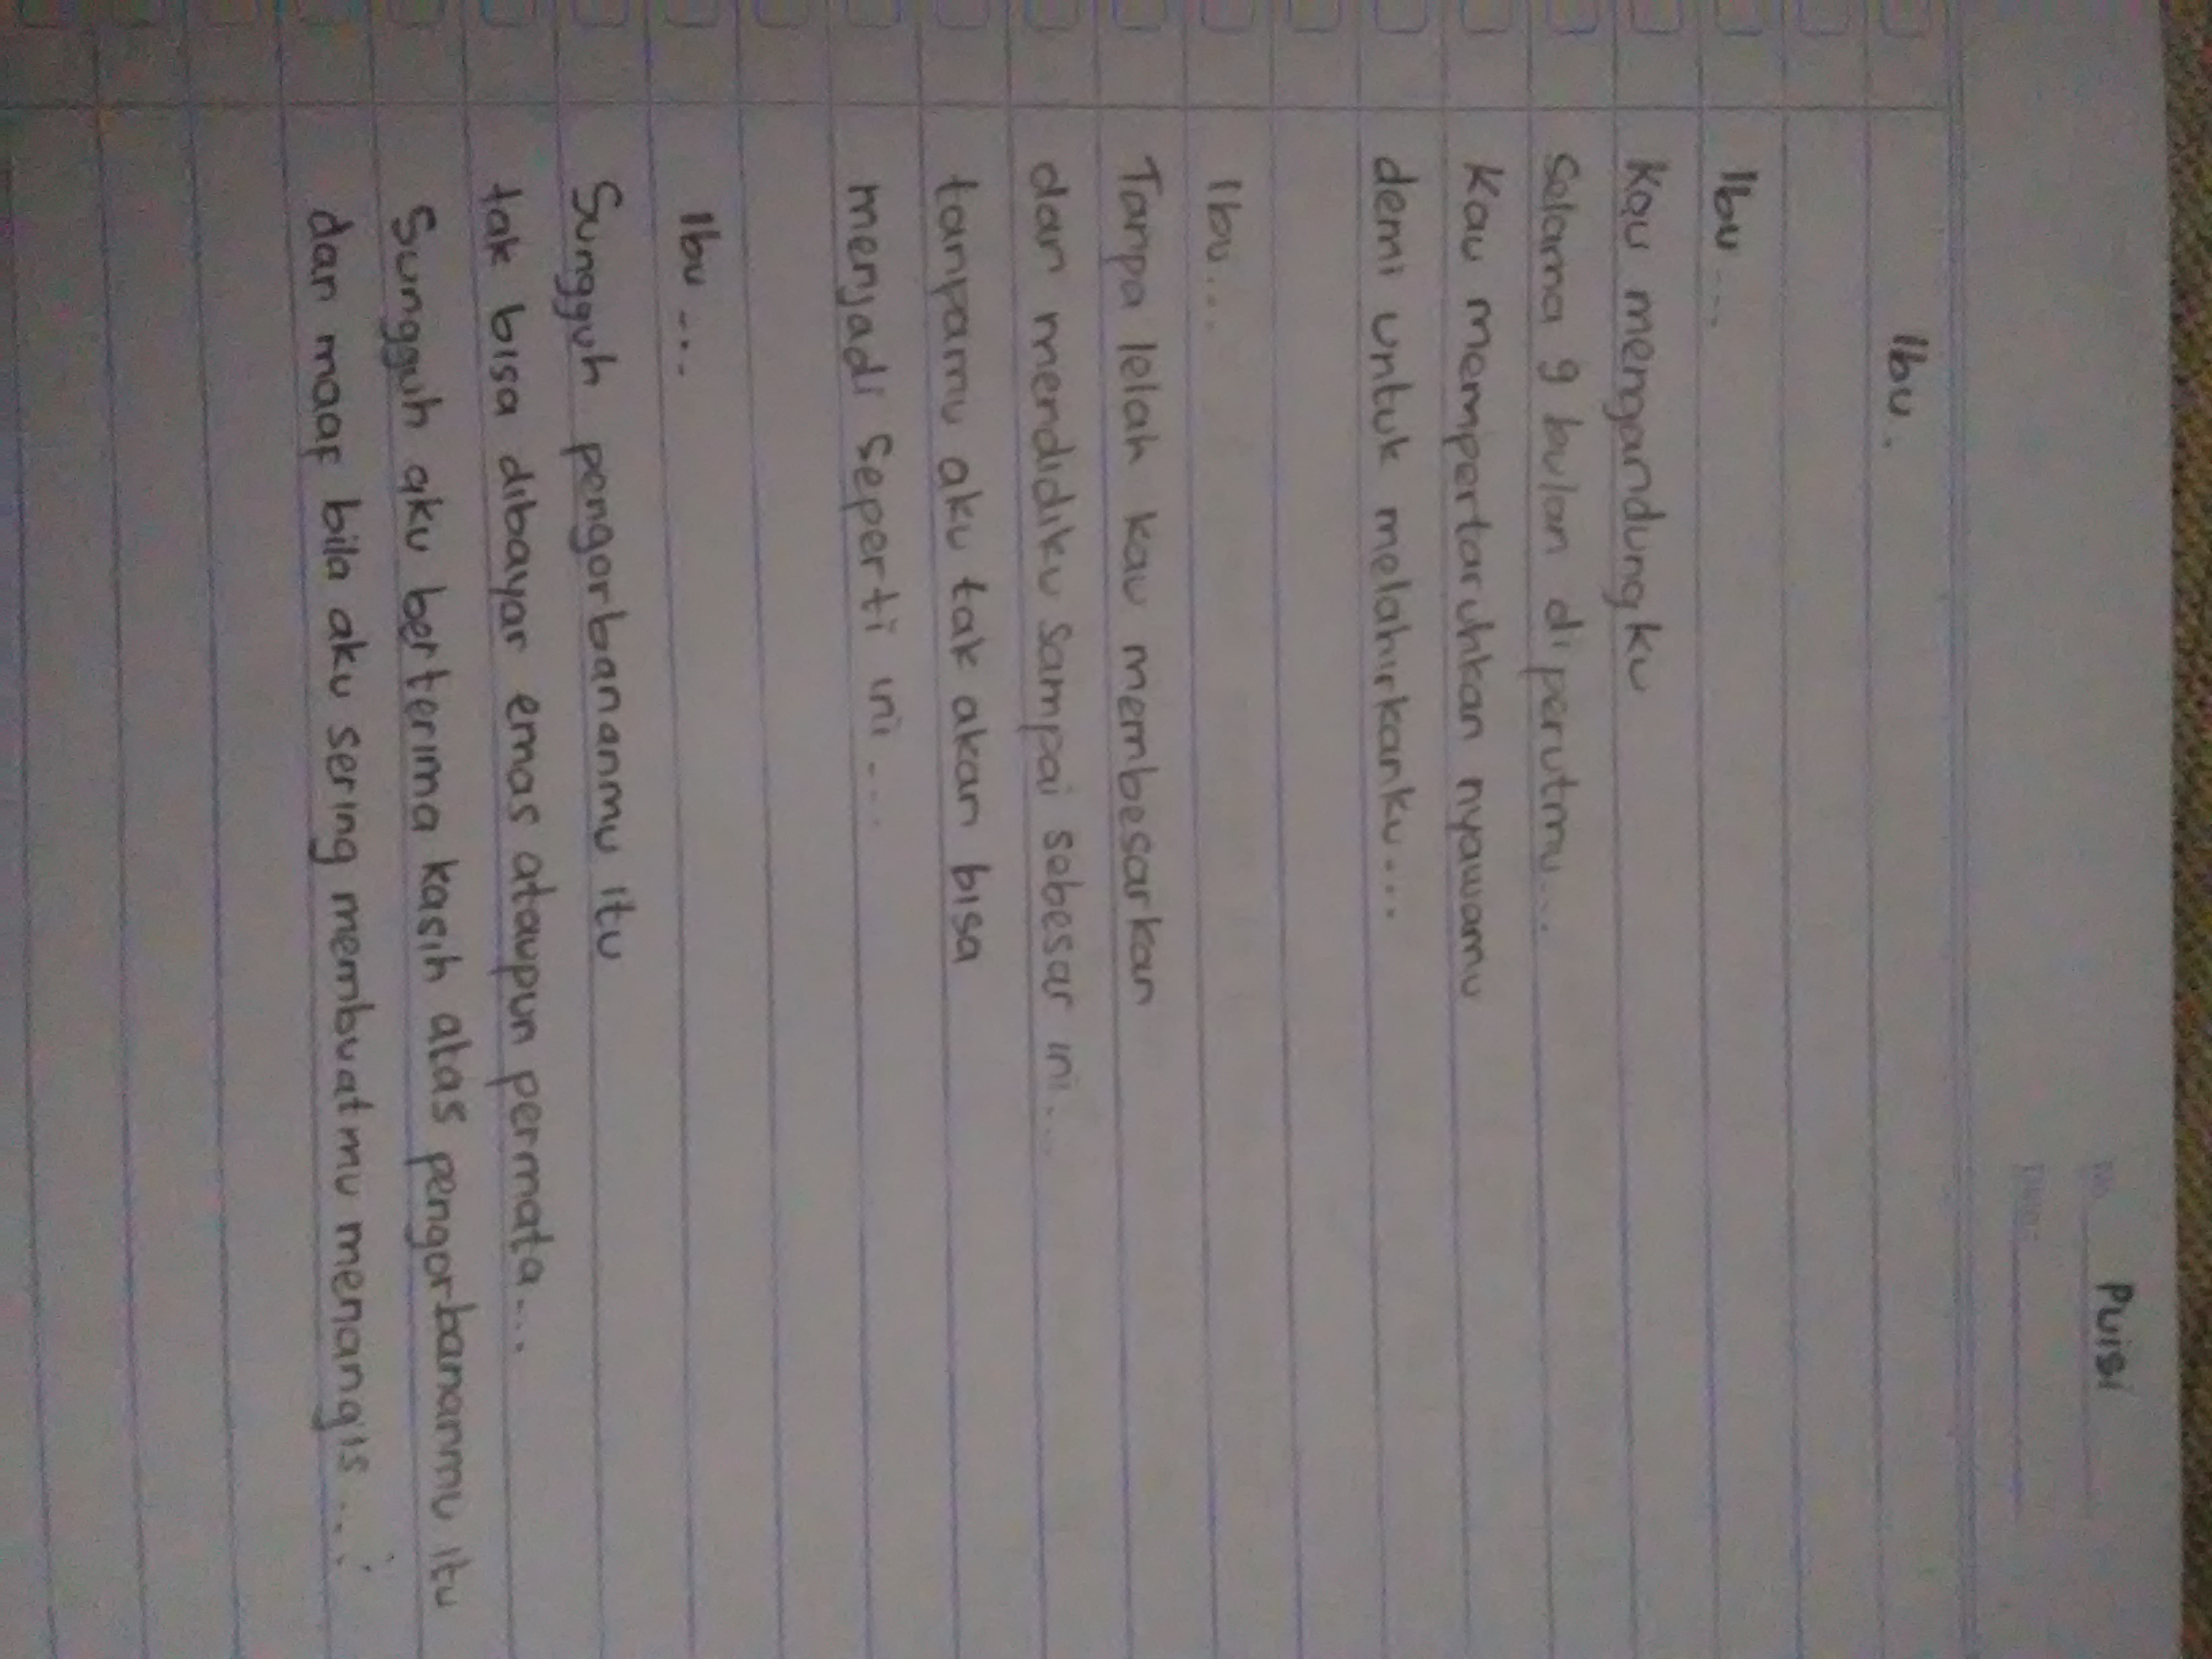 Puisi
Ibu.
Ibu...
Kau mengandungku
Selama 9 bulan diperutmu...
Kau mempertaruhkan nyawamu
demi untuk melahirkanku....
Ibu...
Tanpa lelah kau membesarkan
dan mendidiku sampai sebesar ini...
tanpamu aku tak akan bisa
menjadi seperti ini...
Ibu...
Sungguh pengorbananmu itu
tak bisa dibayar emas ataupun permata...
Sungguh aku berterima kasih atas pengorbananmu itu
dan maaf bila aku sering membuatmu menangis...